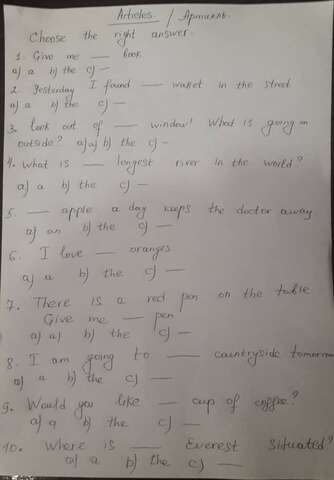 Articles / Артикль.
Choose the right answer.
1. Give me — book.
a) a b) the c) —
2. Yesterday I found — wallet in the street
a) a b) the c) —
3. Look out of — window! What is going on
outside? a) a b) the c) —
4. What is — longest river in the world?
a) a b) the c) —
5. — apple a day keeps the doctor away.
a) an b) the c) —
6. I love — oranges
a) a b) the c) —
7. There is a red pen on the table
Give me — pen
a) a b) the c) —
8. I am going to — countryside tomorrow
a) a b) the c) —
9. Would you like — cup of coffee?
a) a b) the c) —
10. Where is — Everest situated?
a) a b) the c) —